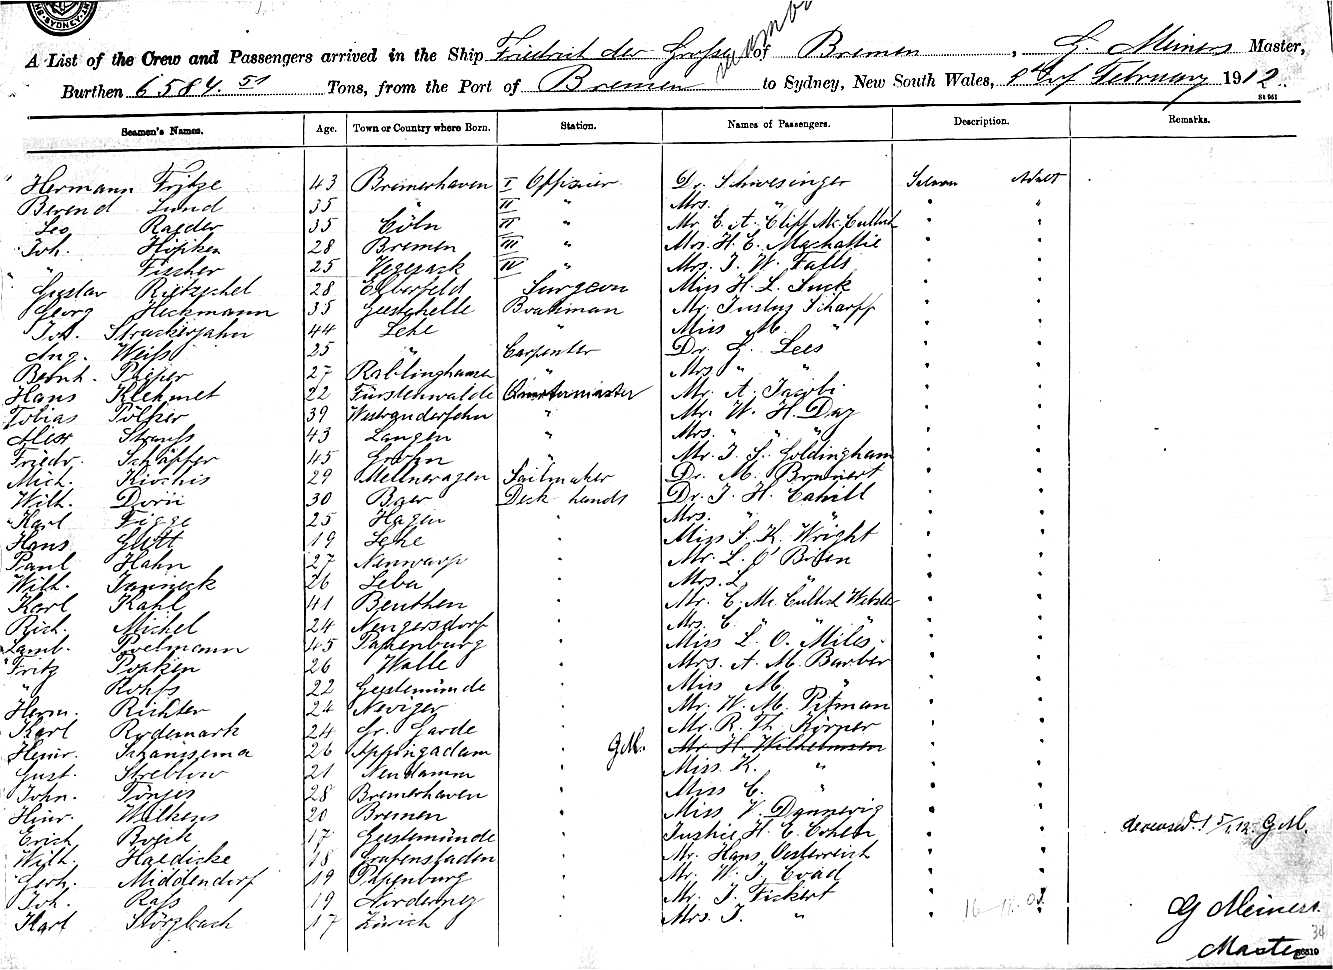 SYDNEY
A List of the Crew and Passengers arrived in the Ship Friedrich der Grosse of Bremen, G. Meiners Master,
Burthen 6584.51 Tons, from the Port of Bremen to Sydney, New South Wales, 9th of February 1912
St 961
Seamen's Names. Age. Town or Country where Born. Station. Names of Passengers. Description. Remarks.
Hermann Fritze 43 Bremerhaven I Offizier Dr. Schwesinger Saloon Adult
Berend Lund 35 " II " Mrs. " " "
Leo Raeder 35 Cöln II " Mr. C. A. Cliff Mc. Culloch " "
Joh. Höpken 28 Bremen III " Mrs. H. C. Machattie " "
" Fischer 25 Vegesack IV " Mrs. J. W. Falls " "
Gustav Rietzschel 28 Elberfeld Surgeon Miss H. L. Suck " "
Georg Heckmann 35 Geestehelle Boatsman Mr. Justus Scharff " "
Joh. Struckerjahn 44 Lehe " Miss M. " " "
Aug. Weiss 25 " Carpenter Dr. G. Lees " "
Bernh. Pieper 27 Recklinghausen " Mrs. " " " "
Hans Klehmet 22 Fürstenwalde Quartermaster Mr. A. Jacobi " "
Tobias Pölker 39 Westrauderfehn " Mr. W. H. Day " "
Alex Strauss 43 Langen " Mrs. " " " " "
Friedr. Schäffer 45 Grohn " Mr. J. S. Goldingham " "
Mich. Kirchis 29 Sailmaker Dr. M. " "
Wilh. Dorii 30 Baer Deck hands Dr. J. H. Cahill " "
Karl Figge 25 Hagen " Mrs. " " " "
Hans Gutt 19 Lehe " Miss S. K. Wright " "
Paul Hahn 27 Neuwarp " Mr. L. O' Brien " "
Wilh. Janneck 26 Leba " Mrs. L. " " "
Karl Kahl 41 Beuthen " Mr. C. Mc. Culloch Webster " "
Rich. Michel 24 Neugersdorf " Mrs. C. " " " " "
Lamb. Poelmann 45 Papenburg " Miss L. O. Miles " "
Fritz Popken 26 Walle " Mrs. A. M. Barber " "
" Rohfs 22 Geestemünde " Miss M. " " "
Herm. Richter 24 Neviger " Mr. W. M. Pitman " "
Karl Rodemark 24 Gr. Garde " Mr. R. Th. Körper " "
Heinr. Schanssema 26 Appingadam " G.M. Mr H. Wilhelmsen " "
Gust. Streblow 21 Neudamm " Miss. K. " " "
John. Tönjes 28 Bremerhaven " Miss C. " " "
Hinr. Wilkens 20 Bremen " Miss V. Dannevig " "
Erich Boeik 17 Geestemünde " Justice H. E. Cohen " " deceased 1 5/1.12. G.M.
Wilh. Haedicke 18 Grafenstaden " Mr. Hans Oesterreich " "
Gerh. Middendorf 19 Papenburg " Mr. W. J. Coad " "
Joh. Rass 19 Norderney " Mr. J. Fickert " "
Karl Störzbach 17 Zürich " Mrs. J. " " "
G Meiners
Master
34